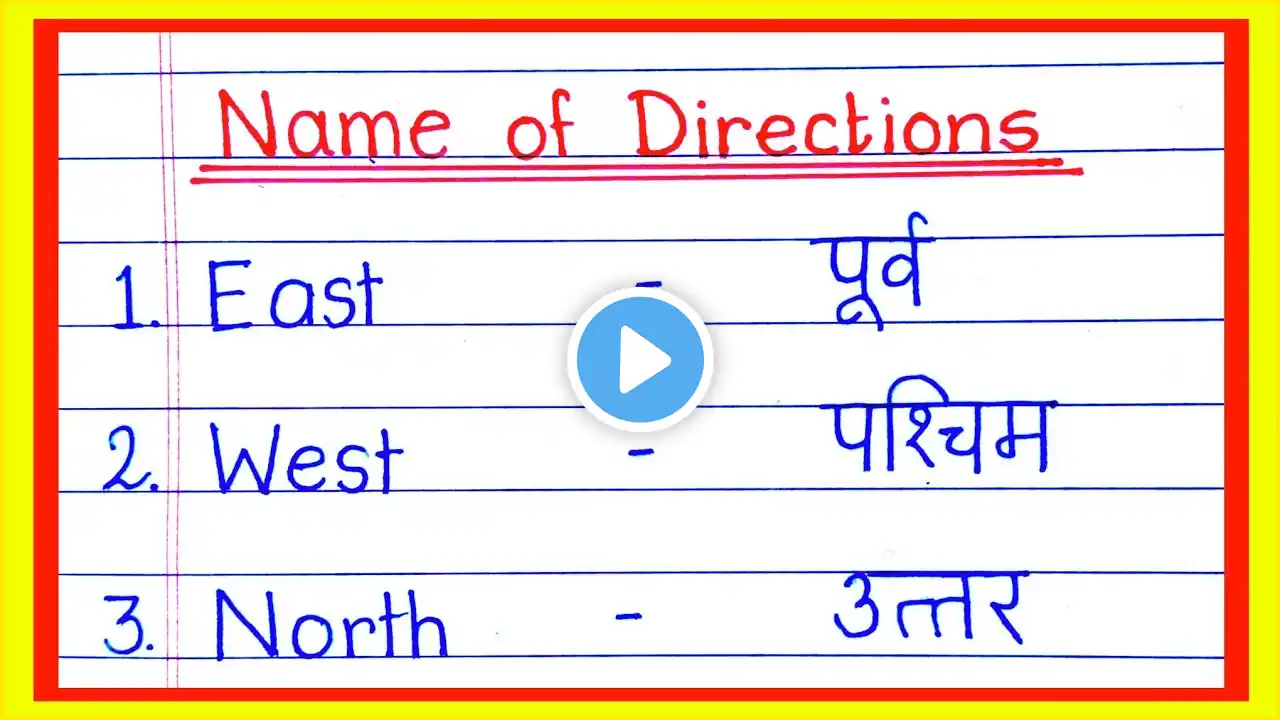 Name of Directions
1. East - पूर्व
2. West - पश्चिम
3. North - उत्तर